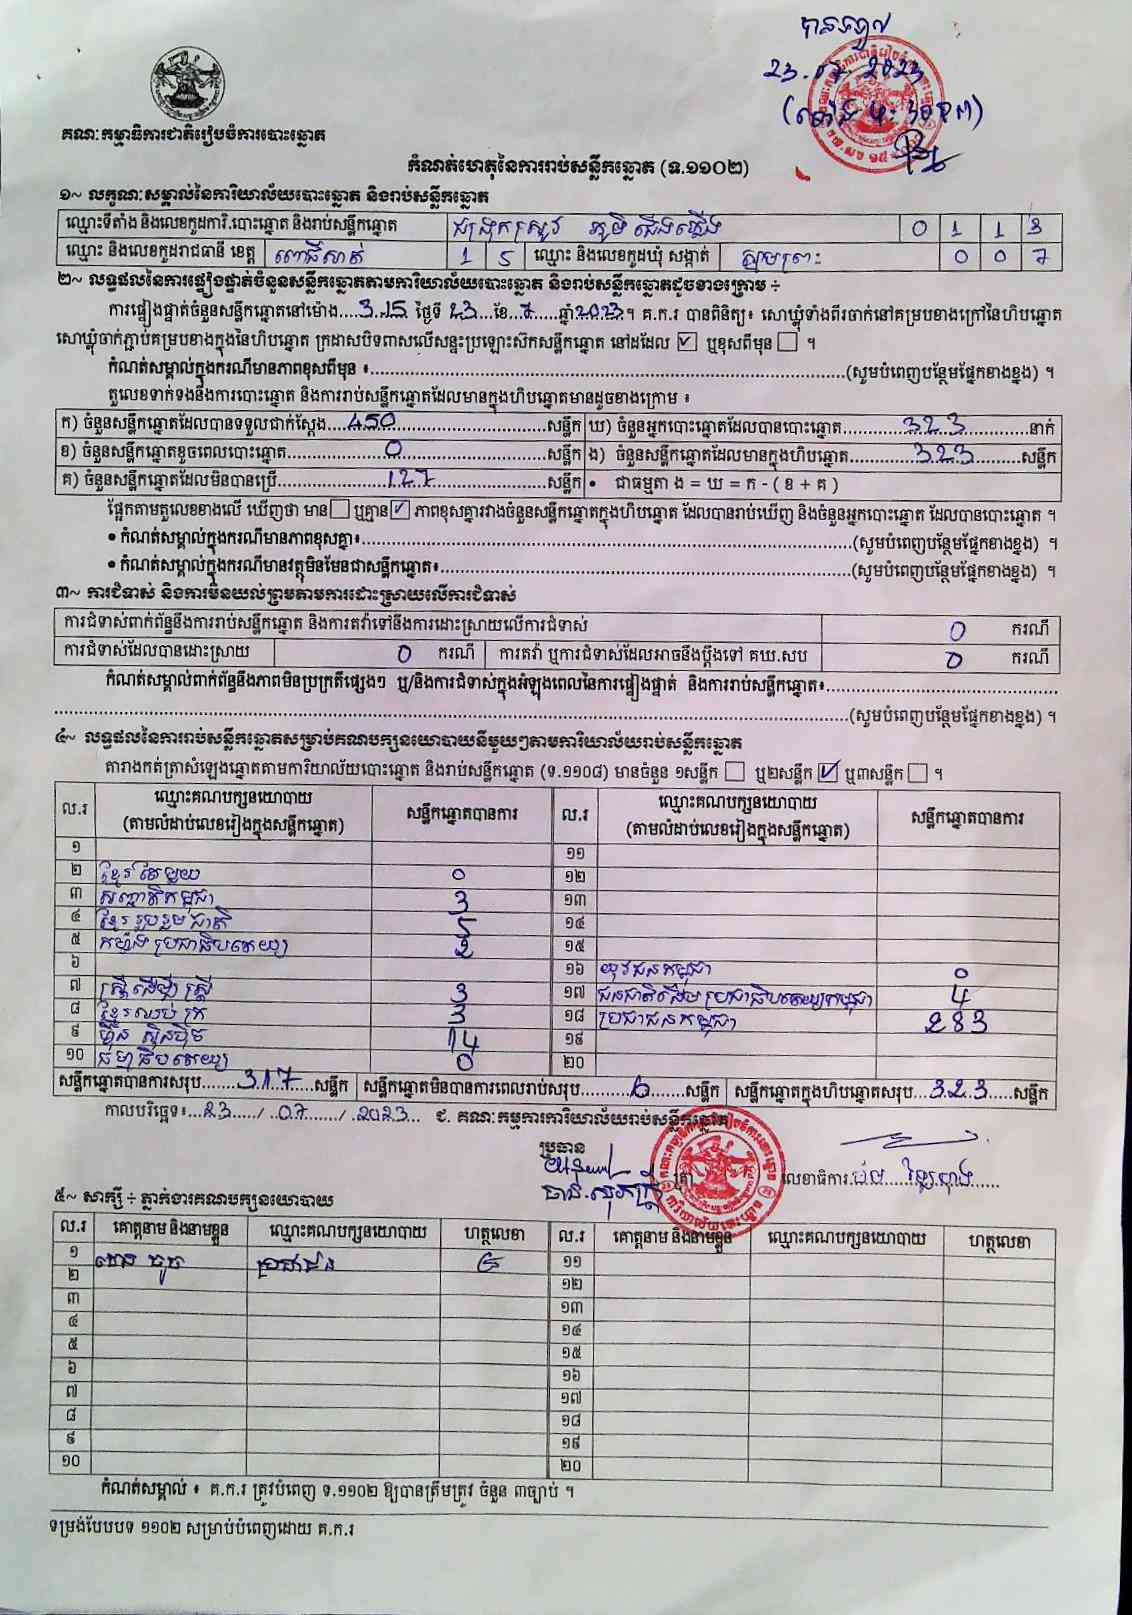 បានទទួល
23.07.2023
គណៈកម្មាធិការជាតិរៀបចំការបោះឆ្នោត
កំណត់ហេតុនៃការរាប់សន្លឹកឆ្នោត (ទ.១១០២)
១~ លក្ខណៈសម្គាល់នៃការិយាល័យបោះឆ្នោត និងរាប់សន្លឹកឆ្នោត
ឈ្មោះទីតាំង និងលេខកូដការិ.បោះឆ្នោត និងរាប់សន្លឹកឆ្នោត ជង្រុកស្រូវ ភូមិ ជើងភ្លើង 0 1 1 3
ឈ្មោះ និងលេខកូដរាជធានី ខេត្ត ពោធិ៍សាត់ 1 5 ឈ្មោះ និងលេខកូដឃុំ សង្កាត់ 0 0 7
២~ លទ្ធផលនៃការផ្ទៀងផ្ទាត់ចំនួនសន្លឹកឆ្នោតតាមការិយាល័យបោះឆ្នោត និងរាប់សន្លឹកឆ្នោតដូចខាងក្រោម ÷
ការផ្ទៀងផ្ទាត់ចំនួនសន្លឹកឆ្នោតនៅម៉ោង....3.15 ថ្ងៃទី 23...ខែ..7.....ឆ្នាំ2023។ គ.ក.រ បានពិនិត្យ៖ សោឃ្លុំទាំងពីរចាក់នៅគម្របខាងក្រៅនៃហិបឆ្នោត
សោឃ្លុំចាក់ភ្ជាប់គម្របខាងក្នុងនៃហិបឆ្នោត ក្រដាសបិទពាសលើសន្ទះប្រឡោះស៊កសន្លឹកឆ្នោត នៅដដែល ☑ ឬខុសពីមុន ☐ ។
កំណត់សម្គាល់ក្នុងករណីមានភាពខុសពីមុន ៖........(សូមបំពេញបន្ថែមផ្នែកខាងខ្នង) ។
តួលេខទាក់ទងនឹងការបោះឆ្នោត និងការរាប់សន្លឹកឆ្នោតដែលមានក្នុងហិបឆ្នោតមានដូចខាងក្រោម ៖
ក) ចំនួនសន្លឹកឆ្នោតដែលបានទទួលជាក់ស្តែង....450........សន្លឹក ឃ) ចំនួនអ្នកបោះឆ្នោតដែលបានបោះឆ្នោត........323........នាក់
ខ) ចំនួនសន្លឹកឆ្នោតខូចពេលបោះឆ្នោត........0........សន្លឹក ង) ចំនួនសន្លឹកឆ្នោតដែលមានក្នុងហិបឆ្នោត........323........សន្លឹក
គ) ចំនួនសន្លឹកឆ្នោតដែលមិនបានប្រើ........127........សន្លឹក • ជាធម្មតា ង = ឃ = ក - ( ខ + គ )
ផ្អែកតាមតួលេខខាងលើ ឃើញថា មាន☐ ឬគ្មាន☑ ភាពខុសគ្នារវាងចំនួនសន្លឹកឆ្នោតក្នុងហិបឆ្នោត ដែលបានរាប់ឃើញ និងចំនួនអ្នកបោះឆ្នោត ដែលបានបោះឆ្នោត ។
• កំណត់សម្គាល់ក្នុងករណីមានភាពខុសគ្នា៖........(សូមបំពេញបន្ថែមផ្នែកខាងខ្នង) ។
• កំណត់សម្គាល់ក្នុងករណីមានវត្ថុមិនមែនជាសន្លឹកឆ្នោត៖........(សូមបំពេញបន្ថែមផ្នែកខាងខ្នង) ។
៣~ ការជំទាស់ និងការមិនយល់ព្រមតាមការដោះស្រាយលើការជំទាស់
ការជំទាស់ពាក់ព័ន្ធនឹងការរាប់សន្លឹកឆ្នោត និងការតវ៉ាទៅនឹងការដោះស្រាយលើការជំទាស់ 0 ករណី
ការជំទាស់ដែលបានដោះស្រាយ 0 ករណី ការតវ៉ា ឬការជំទាស់ដែលអាចនឹងប្តឹងទៅ គឃ.សប 0 ករណី
កំណត់សម្គាល់ពាក់ព័ន្ធនឹងភាពមិនប្រក្រតីផ្សេងៗ ឬ/និងការជំទាស់ក្នុងអំឡុងពេលនៃការផ្ទៀងផ្ទាត់ និងការរាប់សន្លឹកឆ្នោត៖........
........(សូមបំពេញបន្ថែមផ្នែកខាងខ្នង) ។
៤~ លទ្ធផលនៃការរាប់សន្លឹកឆ្នោតសម្រាប់គណបក្សនយោបាយនីមួយៗតាមការិយាល័យរាប់សន្លឹកឆ្នោត
តារាងកត់ត្រាសំឡេងឆ្នោតតាមការិយាល័យបោះឆ្នោត និងរាប់សន្លឹកឆ្នោត (ទ.១១០៨) មានចំនួន ១សន្លឹក ☐ ឬ២សន្លឹក ☑ ឬ៣សន្លឹក ☐ ។
ល.រ ឈ្មោះគណបក្សនយោបាយ (តាមលំដាប់លេខរៀងក្នុងសន្លឹកឆ្នោត) សន្លឹកឆ្នោតបានការ ល.រ ឈ្មោះគណបក្សនយោបាយ (តាមលំដាប់លេខរៀងក្នុងសន្លឹកឆ្នោត) សន្លឹកឆ្នោតបានការ
១ ១១
២ ខ្មែរតែមួយ 0 ១២
៣ សញ្ជាតិកម្ពុជា 3 ១៣
៤ ខ្មែររួបរួមជាតិ 5 ១៤
៥ កម្លាំងប្រជាធិបតេយ្យ 2 ១៥
៦ ១៦ យុវជនកម្ពុជា 0
៧ ស្ត្រីដើម្បីស្ត្រី 3 ១៧ ជនជាតិដើមប្រជាធិបតេយ្យកម្ពុជា 4
៨ ខ្មែរឈប់ក្រ 3 ១៨ ប្រជាជនកម្ពុជា 283
៩ ហ៊្វុនស៊ិនប៉ិច 14 ១៩
១០ ធម្មាធិបតេយ្យ 0 ២០
សន្លឹកឆ្នោតបានការសរុប........317......សន្លឹក សន្លឹកឆ្នោតមិនបានការពេលរាប់សរុប........6........សន្លឹក សន្លឹកឆ្នោតក្នុងហិបឆ្នោតសរុប...323.....សន្លឹក
កាលបរិច្ឆេទ៖...23...../..07....../..2023... ជ. គណៈកម្មការការិយាល័យរាប់សន្លឹកឆ្នោត
ប្រធាន
ត្រា លេខាធិការ
៥~ សាក្សី ÷ ភ្នាក់ងារគណបក្សនយោបាយ
ល.រ គោត្តនាម និងនាមខ្លួន ឈ្មោះគណបក្សនយោបាយ ហត្ថលេខា ល.រ គោត្តនាម និងនាមខ្លួន ឈ្មោះគណបក្សនយោបាយ ហត្ថលេខា
១ ប្រជាជន ១១
២ ១២
៣ ១៣
៤ ១៤
៥ ១៥
៦ ១៦
៧ ១៧
៨ ១៨
៩ ១៩
១០ ២០
កំណត់សម្គាល់ ៖ គ.ក.រ ត្រូវបំពេញ ទ.១១០២ ឱ្យបានត្រឹមត្រូវ ចំនួន ៣ច្បាប់ ។
ទម្រង់បែបបទ ១១០២ សម្រាប់បំពេញដោយ គ.ក.រ